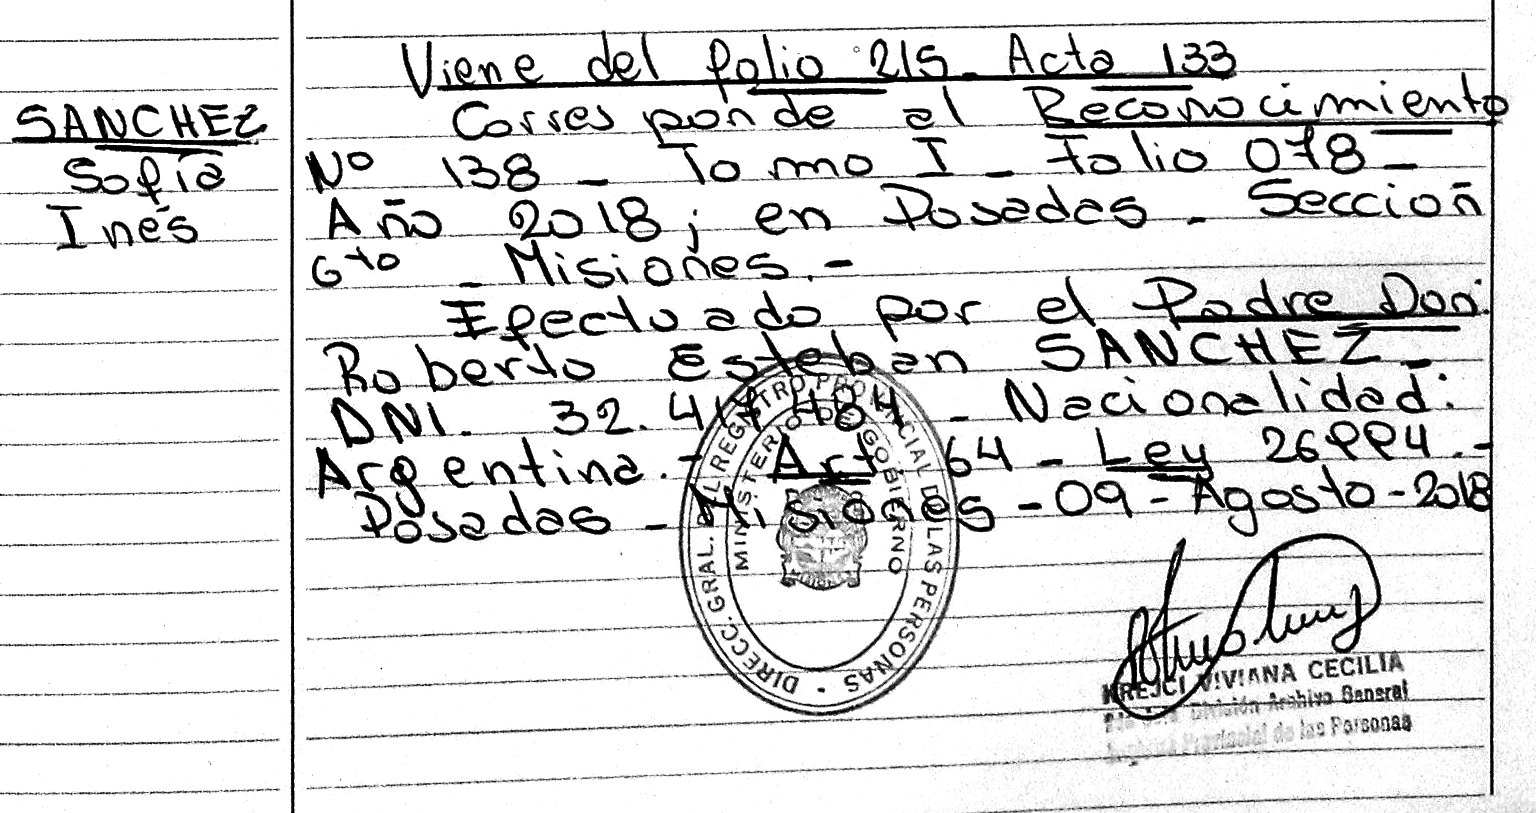 Viene del folio 215_ Acta 133
SANCHEZ
Sofía
Inés
Corresponde al Reconocimiento
Nº 138 _ Tomo I _ Folio 078 _
Año 2018; en Posadas _ Sección
6to _ Misiones.-
Efectuado por el Padre Don:
Roberto Esteban SANCHEZ _
DNI. 32.417.484 _ Nacionalidad:
Argentina.- Art 64 - Ley 26994.-
Posadas - Misiones - 09 - Agosto - 2018
DIRECC. GRAL. DEL REGISTRO PROVINCIAL DE LAS PERSONAS
MINISTERIO DE GOBIERNO
KREJCI VIVIANA CECILIA
División Archivo General
Provincial de las Personas